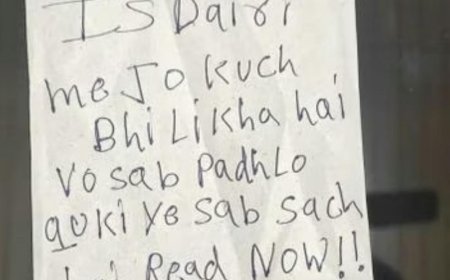 IS Dairi
me Jo kuch
Bhi Likha hai
Vo sab Padhlo
quki ye sab sach
hai Read NOW!!